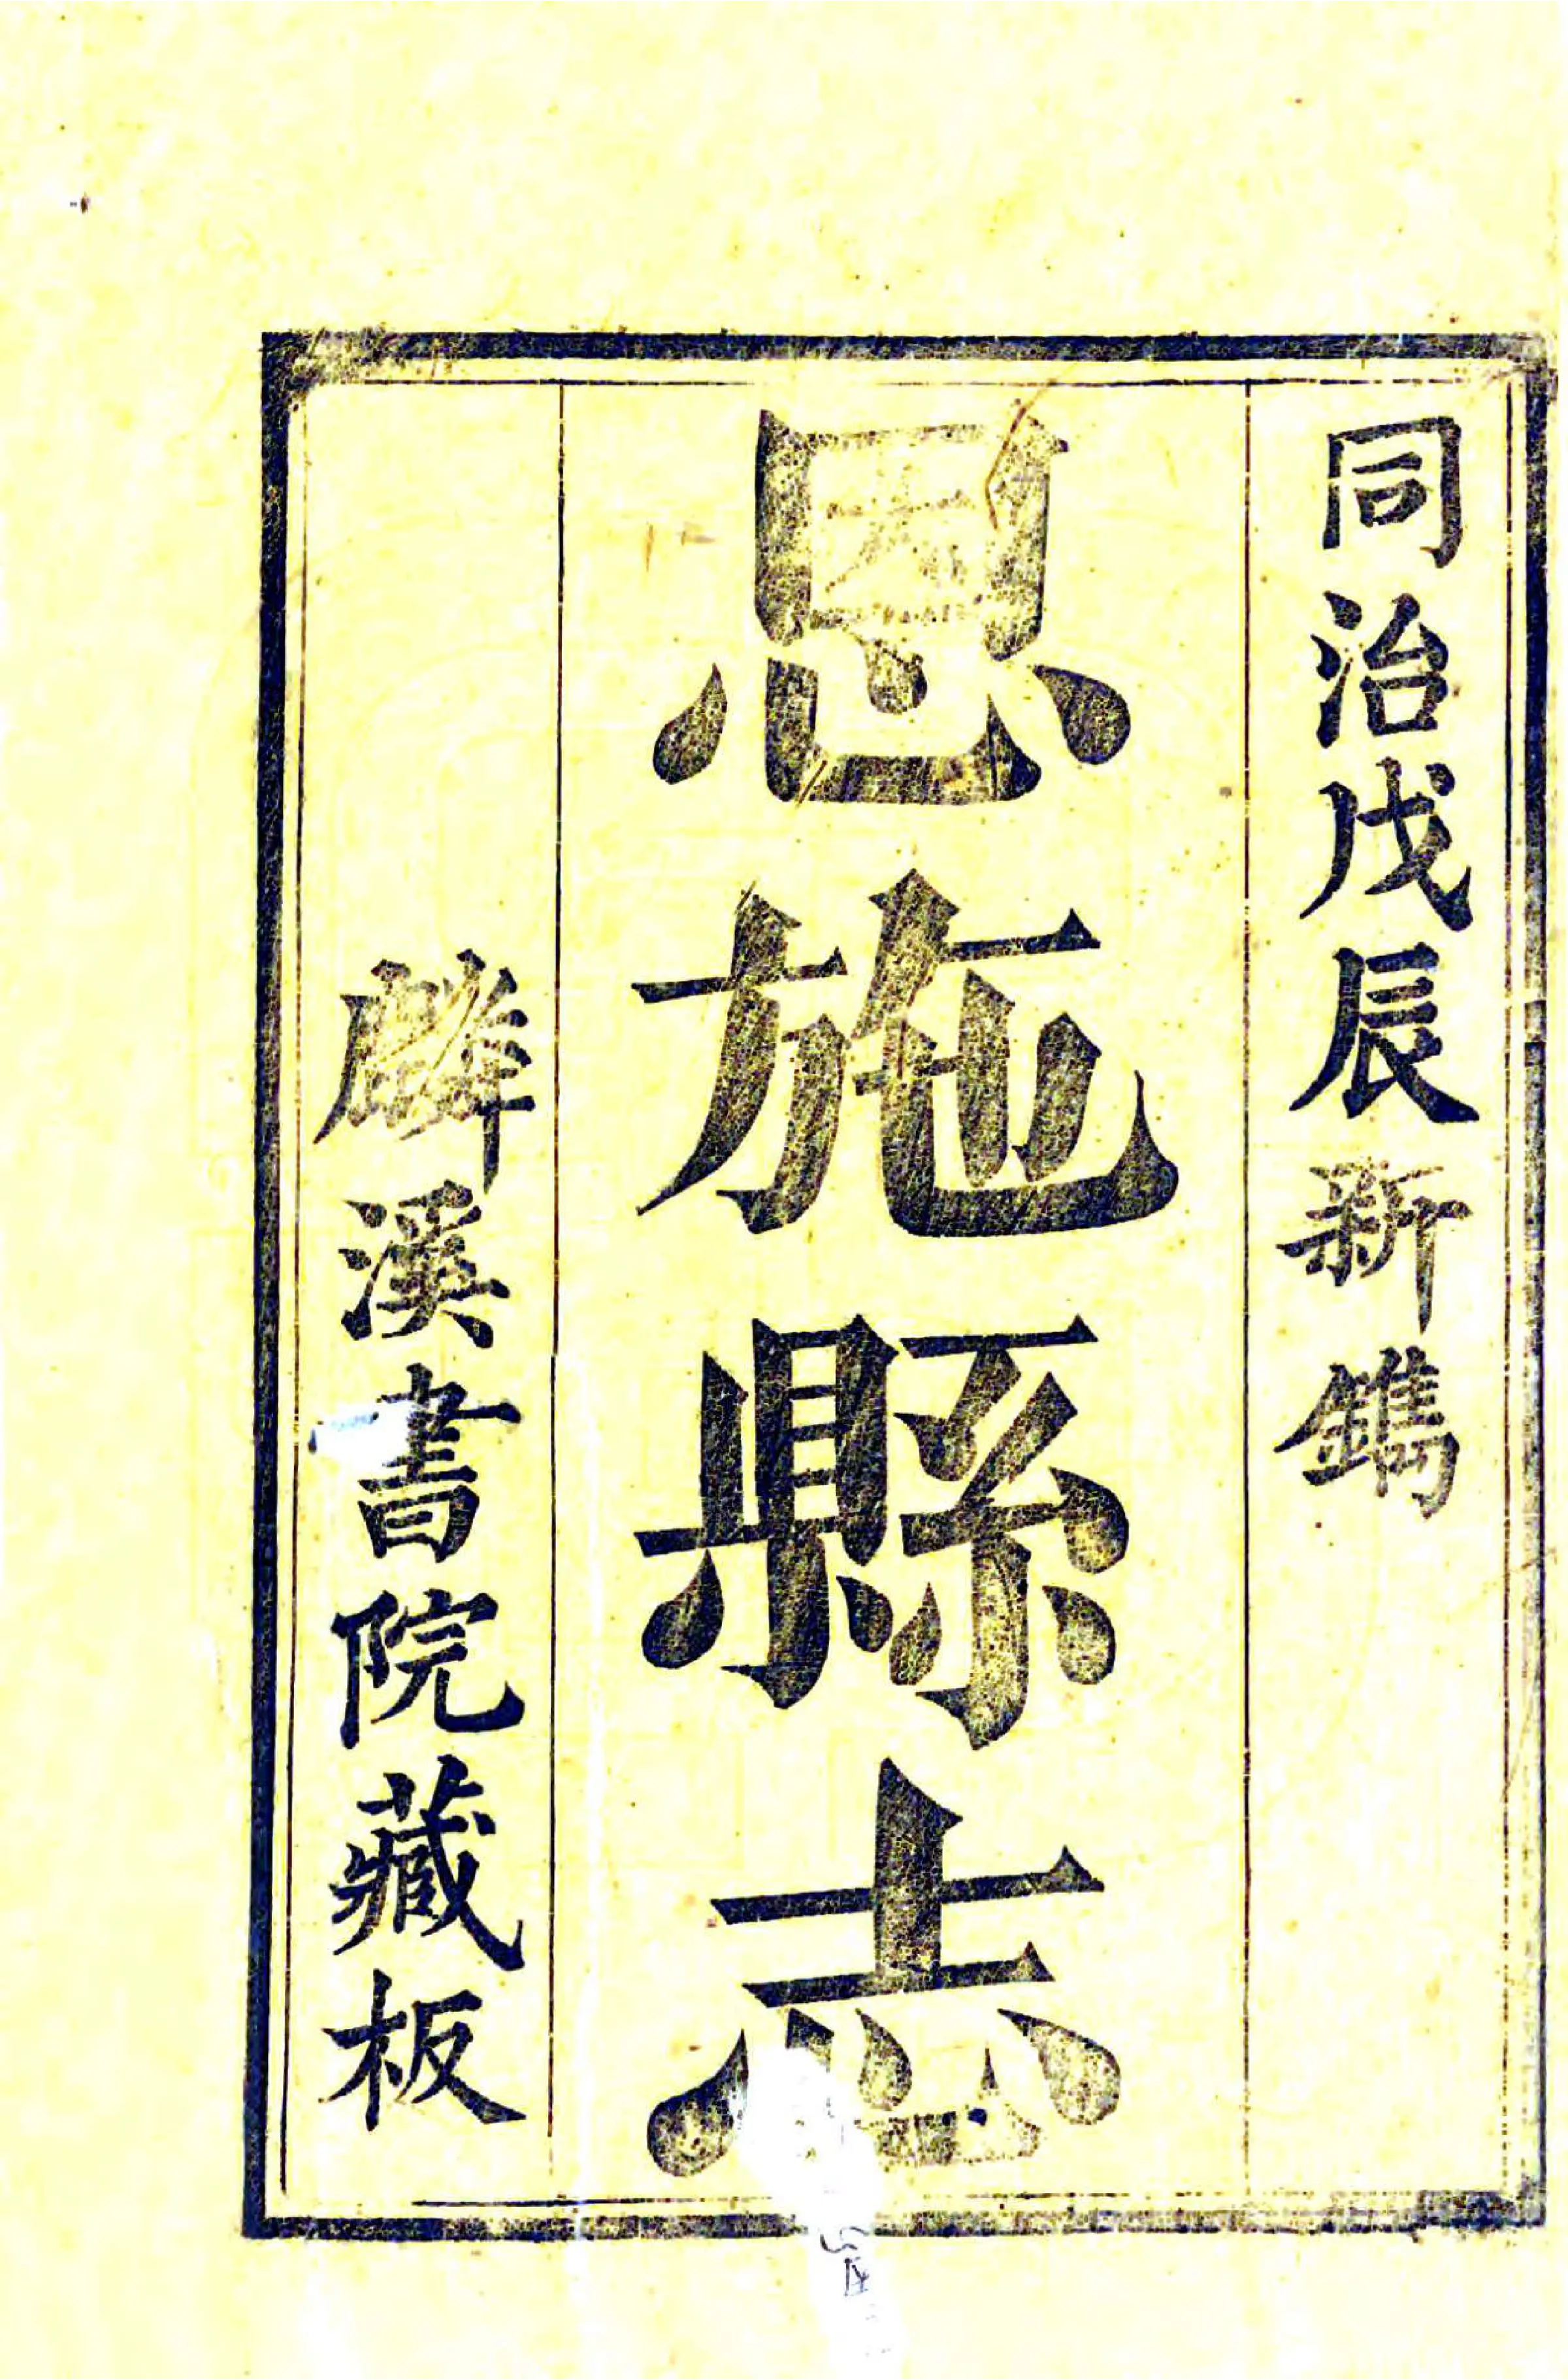 同治戊辰新鐫
恩施縣志
麟溪書院藏板